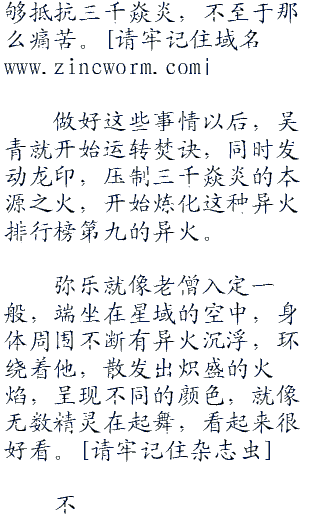 够抵抗三千焱炎，不至于那
么痛苦。[请牢记住域名
www.zincworm.com]
做好这些事情以后，吴
青就开始运转焚诀，同时发
动龙印，压制三千焱炎的本
源之火，开始炼化这种异火
排行榜第九的异火。
弥乐就像老僧入定一
般，端坐在星域的空中，身
体周围不断有异火沉浮，环
绕着他，散发出炽盛的火
焰，呈现不同的颜色，就像
无数精灵在起舞，看起来很
好看。[请牢记住杂志虫]
不